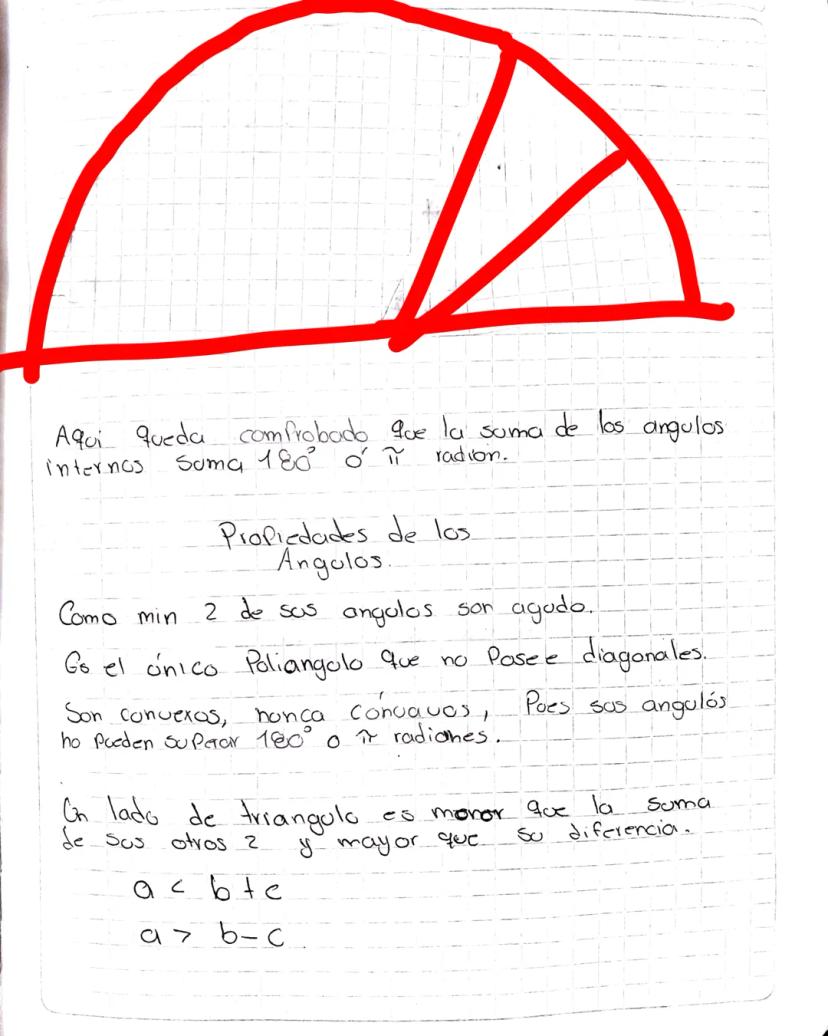 Aqui queda comprobado que la suma de los angulos
internos suma 180° ó π radion.
Propiedades de los
Angulos.
Como min 2 de sus angulos son agudo.
Es el único Poliangulo que no Posee diagonales.
Son convexos, nunca cóncavos, Pues sus angulós
no pueden superar 180° o π radianes.
Un lado de triangulo es menor que la suma
de sus otros 2 y mayor que su diferencia.
a < b + c
a > b - c